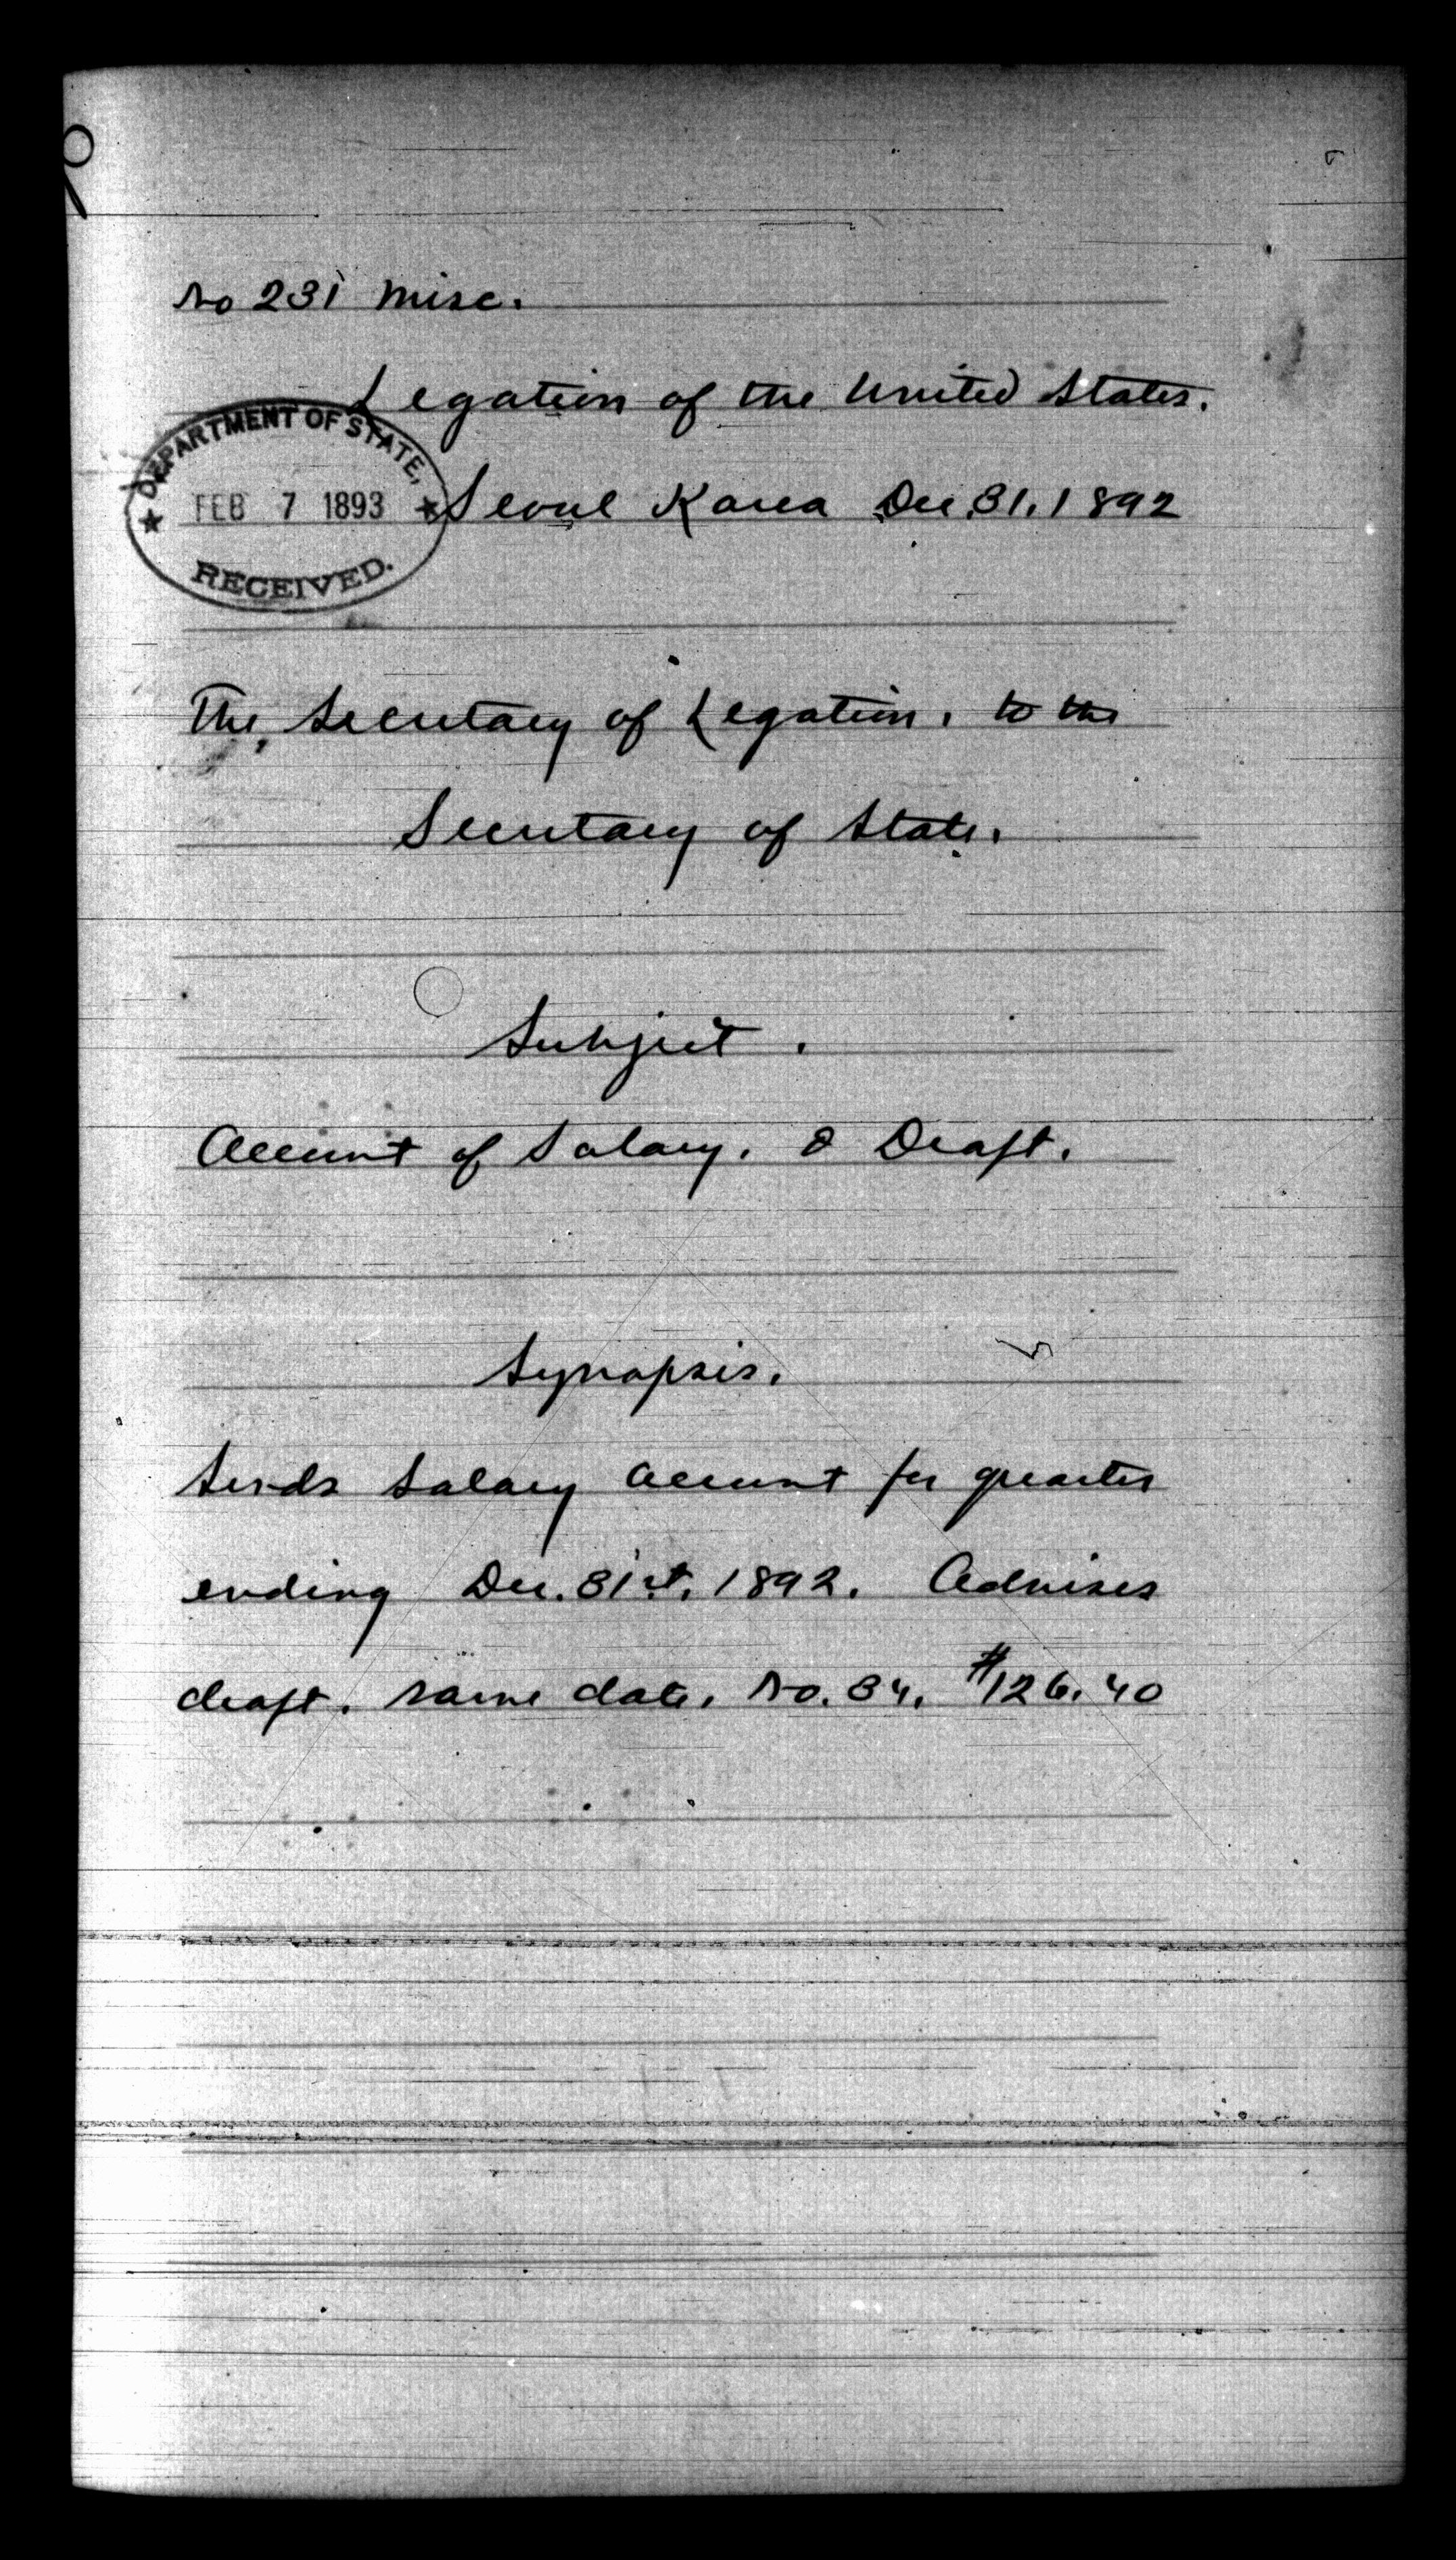 No 231 Misc.
Legation of the United States.
DEPARTMENT OF STATE,
FEB 7 1893
RECEIVED.
Seoul Korea Dec. 31. 1892
The Secretary of Legation, to the
Secretary of State.
Subject.
Account of Salary. & Draft.
Synopsis.
Sends Salary Account for quarter
ending Dec. 31st, 1892. Advises
draft. same date. No. 34. $126.40